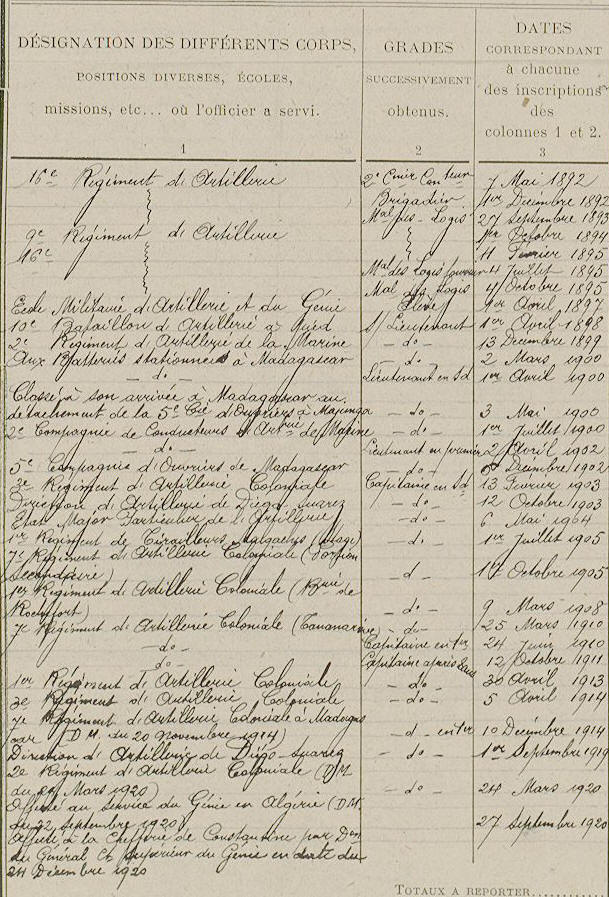 DÉSIGNATION DES DIFFÉRENTS CORPS,
POSITIONS DIVERSES, ÉCOLES,
missions, etc... où l'officier a servi.
1
GRADES
SUCCESSIVEMENT
obtenus.
2
DATES
CORRESPONDANT
à chacune
des inscriptions
des
colonnes 1 et 2.
3
16e Régiment d'Artillerie 2e 7 Mai 1892
Brigadier 1er Décembre 1892
Mal des Logis 27 Septembre 1893
9e Régiment d'Artillerie 1er Octobre 1894
16e 11 Février 1895
Mal des logis fourrier 4 Juillet 1895
Mal des Logis 4 Octobre 1895
Ecole Militaire d'Artillerie et du Génie Elève 1er Avril 1897
10e Bataillon d'Artillerie à pied S/ Lieutenant 1er Avril 1898
2e Régiment d'Artillerie de la Marine - do - 13 Décembre 1899
Aux Batteries stationnées à Madagascar - do - 2 Mars 1900
- do - Lieutenant en 2d 1er Avril 1900
Classé à son arrivée à Madagascar au
détachement de la 5e Cie d'Ouvriers à Majunga - do - 3 Mai 1900
2e Compagnie de Conducteurs d'Artrie de Marine - do - 1er Juillet 1900
- do - Lieutenant en premier 2 Avril 1902
5e Compagnie d'Ouvriers de Madagascar - do - Décembre 1902
3e Régiment d'Artillerie Coloniale Capitaine en 2d 13 Février 1903
Direction d'Artillerie de Diégo Suarez - do - 12 Octobre 1903
Etat Major Particulier de l'Artillerie - do - 6 Mai 1904
1er Régiment de Tirailleurs Malgaches (stage) - do - 1er Juillet 1905
7e Régiment d'Artillerie Coloniale (Portion
Secondaire) - d - 1er Octobre 1905
1er Régiment d'Artillerie Coloniale (Brie de
Rochefort) - do - 9 Mars 1908
7e Régiment d'Artillerie Coloniale (Tananarive) - do - 25 Mars 1910
- do - Capitaine en 1er 24 Juin 1910
- do - Capitaine après 12 Octobre 1911
1er Régiment d'Artillerie Coloniale - do - 30 Avril 1913
3e Régiment d'Artillerie Coloniale - do - 5 Avril 1914
7e Régiment d'Artillerie Coloniale à Madagas
car (D.M. du 20 Novembre 1914) - d - en 1er 10 Décembre 1914
Direction d'Artillerie de Diégo-Suarez - do - 1er Septembre 1919
2e Régiment d'Artillerie Coloniale (D.M.
du Mars 1920) - do - 24 Mars 1920
Affecté au Service du Génie en Algérie (D.M.
du 22 Septembre 1920) 27 Septembre 1920
Affecté à la Chefferie de Constantine par Don
du Général Ct Supérieur du Génie en date du
24 Décembre 1920
TOTAUX A REPORTER............